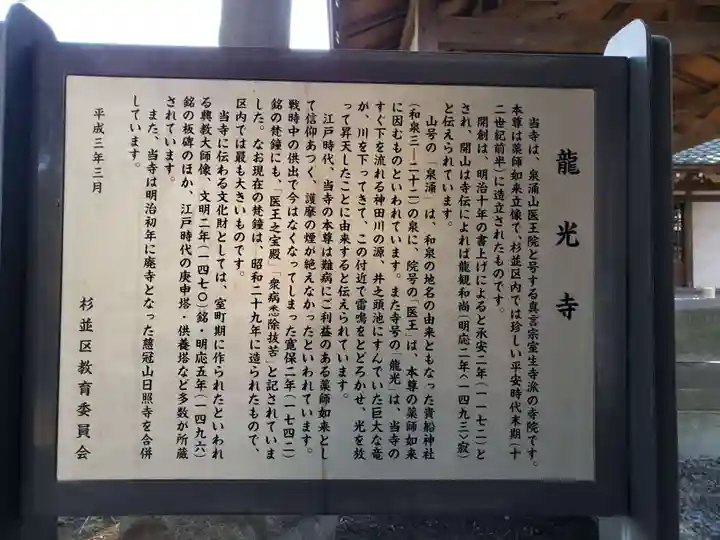 龍光寺
当寺は、泉涌山医王院と号する真言宗室生寺派の寺院です。
本尊は薬師如来立像で、杉並区内では珍しい平安時代末期(十
二世紀前半)に造立されたものです。
開創は、明治十年の書上げによると承安二年(一一七二)と
され、開山は寺伝によれば龍観和尚(明応二年〈一四九三〉寂)
と伝えられています。
山号の「泉涌」は、和泉の地名の由来ともなった貴船神社
(和泉三―二十二)の泉に、院号の「医王」は、本尊の薬師如来
に因むものといわれています。また寺号の「龍光」は、当寺の
すぐ下を流れる神田川の源、井之頭池にすんでいた巨大な竜
が、川を下ってきて、この付近で雷鳴をとどろかせ、光を放
って昇天したことに由来すると伝えられています。
江戸時代、当寺の本尊は難病にご利益のある薬師如来とし
て信仰あつく、護摩の煙が絶えなかったといわれています。
戦時中の供出で今はなくなってしまった寛保二年(一七四二)
銘の梵鐘にも、「医王之宝殿」「衆病悉除抜苦」と記されていま
した。なお現在の梵鐘は、昭和二十九年に造られたもので、
区内では最も大きいものです。
当寺に伝わる文化財としては、室町期に作られたといわれ
る興教大師像、文明二年(一四七〇)銘・明応五年(一四九六)
銘の板碑のほか、江戸時代の庚申塔・供養塔など多数が所蔵
されています。
また、当寺は明治初年に廃寺となった慈冠山日照寺を合併
しています。
平成三年三月
杉並区教育委員会